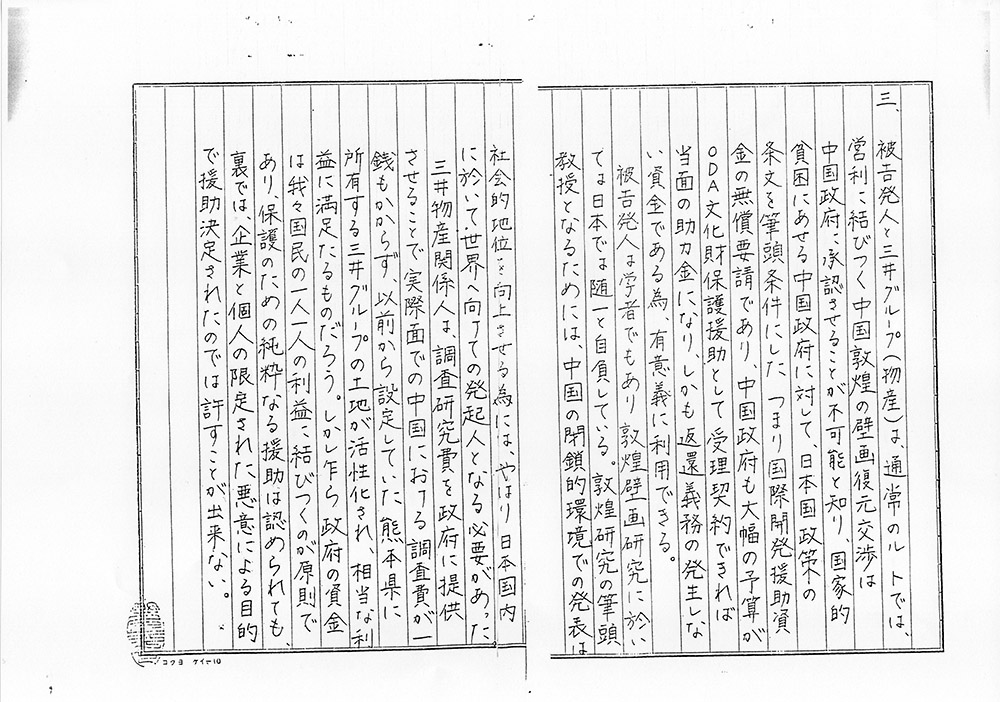 三、
被告発人と三井グループ(物産)は、通常のルートでは、
営利に結びつく中国敦煌の壁画復元交渉は
中国政府に承認させることが不可能と知り、国家的
貧困にあせる中国政府に対して、日本国政策の
条文を筆頭条件にした つまり国際開発援助資
金の無償要請であり、中国政府も大幅の予算が
ODA文化財保護援助として受理契約できれば
当面の助力金になり、しかも返還義務の発生しな
い資金である為、有意義に利用できる。
被告発人は学者でもあり敦煌壁画研究に於い
ては日本では随一と自負している。敦煌研究の筆頭
教授となるためには、中国の閉鎖的環境での発表は
社会的地位を向上させる為には、やはり日本国内
に於いて、世界へ向けての発起人となる必要があった
三井物産関係人は、調査研究費を政府に提供
させることで実際面での中国における調査費が一
銭もかからず、以前から設定していた熊本県に
所有する三井グループの土地が活性化され、相当な利
益に満足たるものだろう。しかし乍ら政府の資金
は我々国民の一人一人の利益に結びつくのが原則で
あり、保護のための純粋なる援助は認められても、
裏では、企業と個人の限定された悪意による目的
で援助決定されたのでは許すことが出来ない。
コクヨ ケイ-10